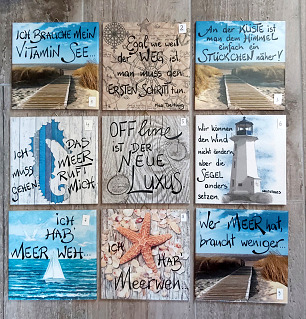 ICH BRAUCHE MEIN
VITAMIN SEE...
Egal wie weit
der WEG ist,
man muss den
ERSTEN SCHRITT tun.
An der KÜSTE ist
man dem HIMMEL
einfach ein
STÜCKCHEN näher!
ICH
MUSS
GEHEN!
DAS
MEER
RUFT
MICH
OFFline
IST DER
NEUE
LUXUS.
Wir können
den Wind
nicht ändern,
aber die
SEGEL
anders
setzen.
ICH
HAB'
MEER WEH...
ICH
HAB'
Meerweh...
Wer MEER hat,
braucht weniger.